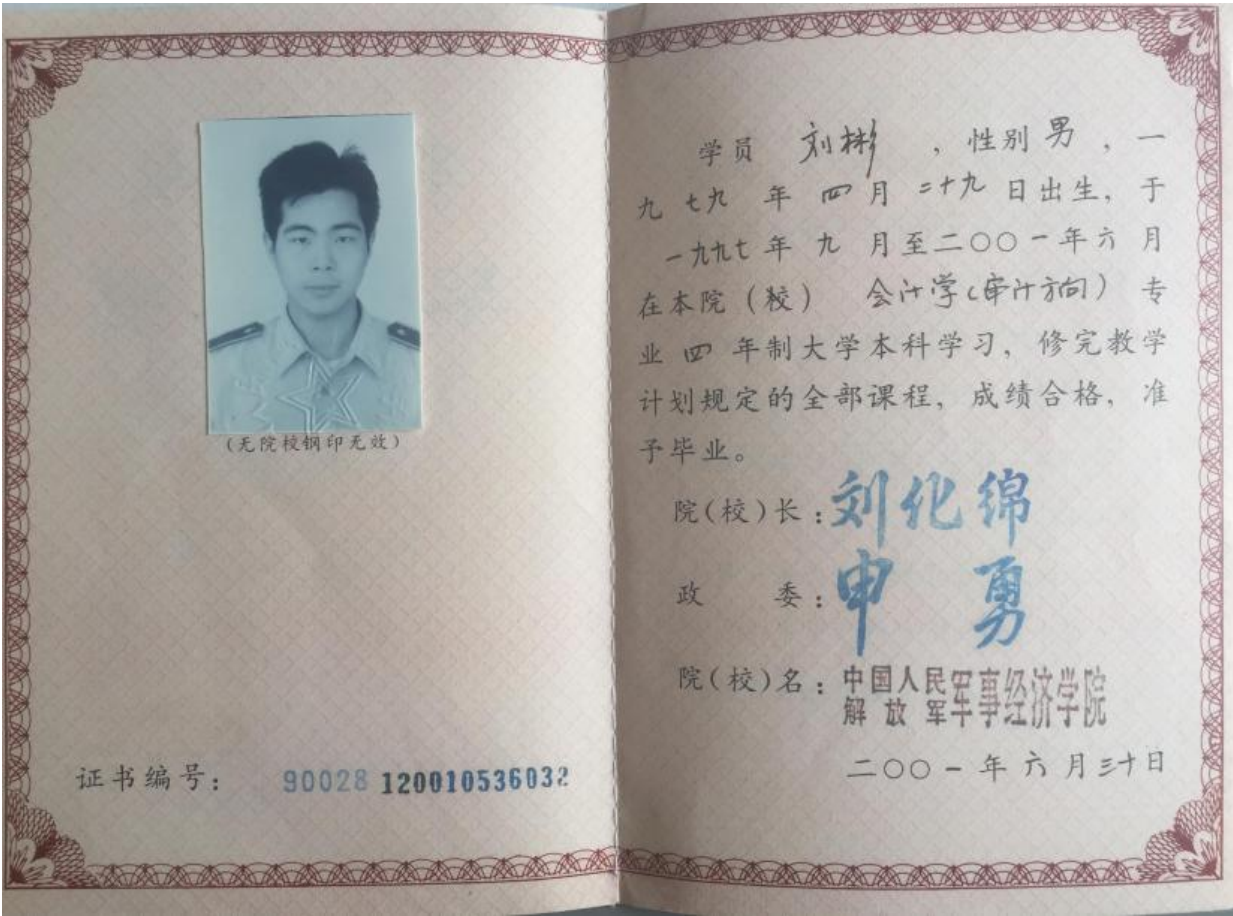 (无院校钢印无效)
证书编号: 90028 120010536032
学员 刘彬 , 性别 男 , 一
九 七九 年 四 月 二十九 日出生, 于
一九九七 年 九 月至二〇〇一年六月
在本院(校) 会计学(审计方向) 专
业 四 年制大学本科学习, 修完教学
计划规定的全部课程, 成绩合格, 准
予毕业。
院(校)长: 刘化绵
政 委: 申勇
院(校)名: 中国人民解放军军事经济学院
二〇〇一年六月三十日